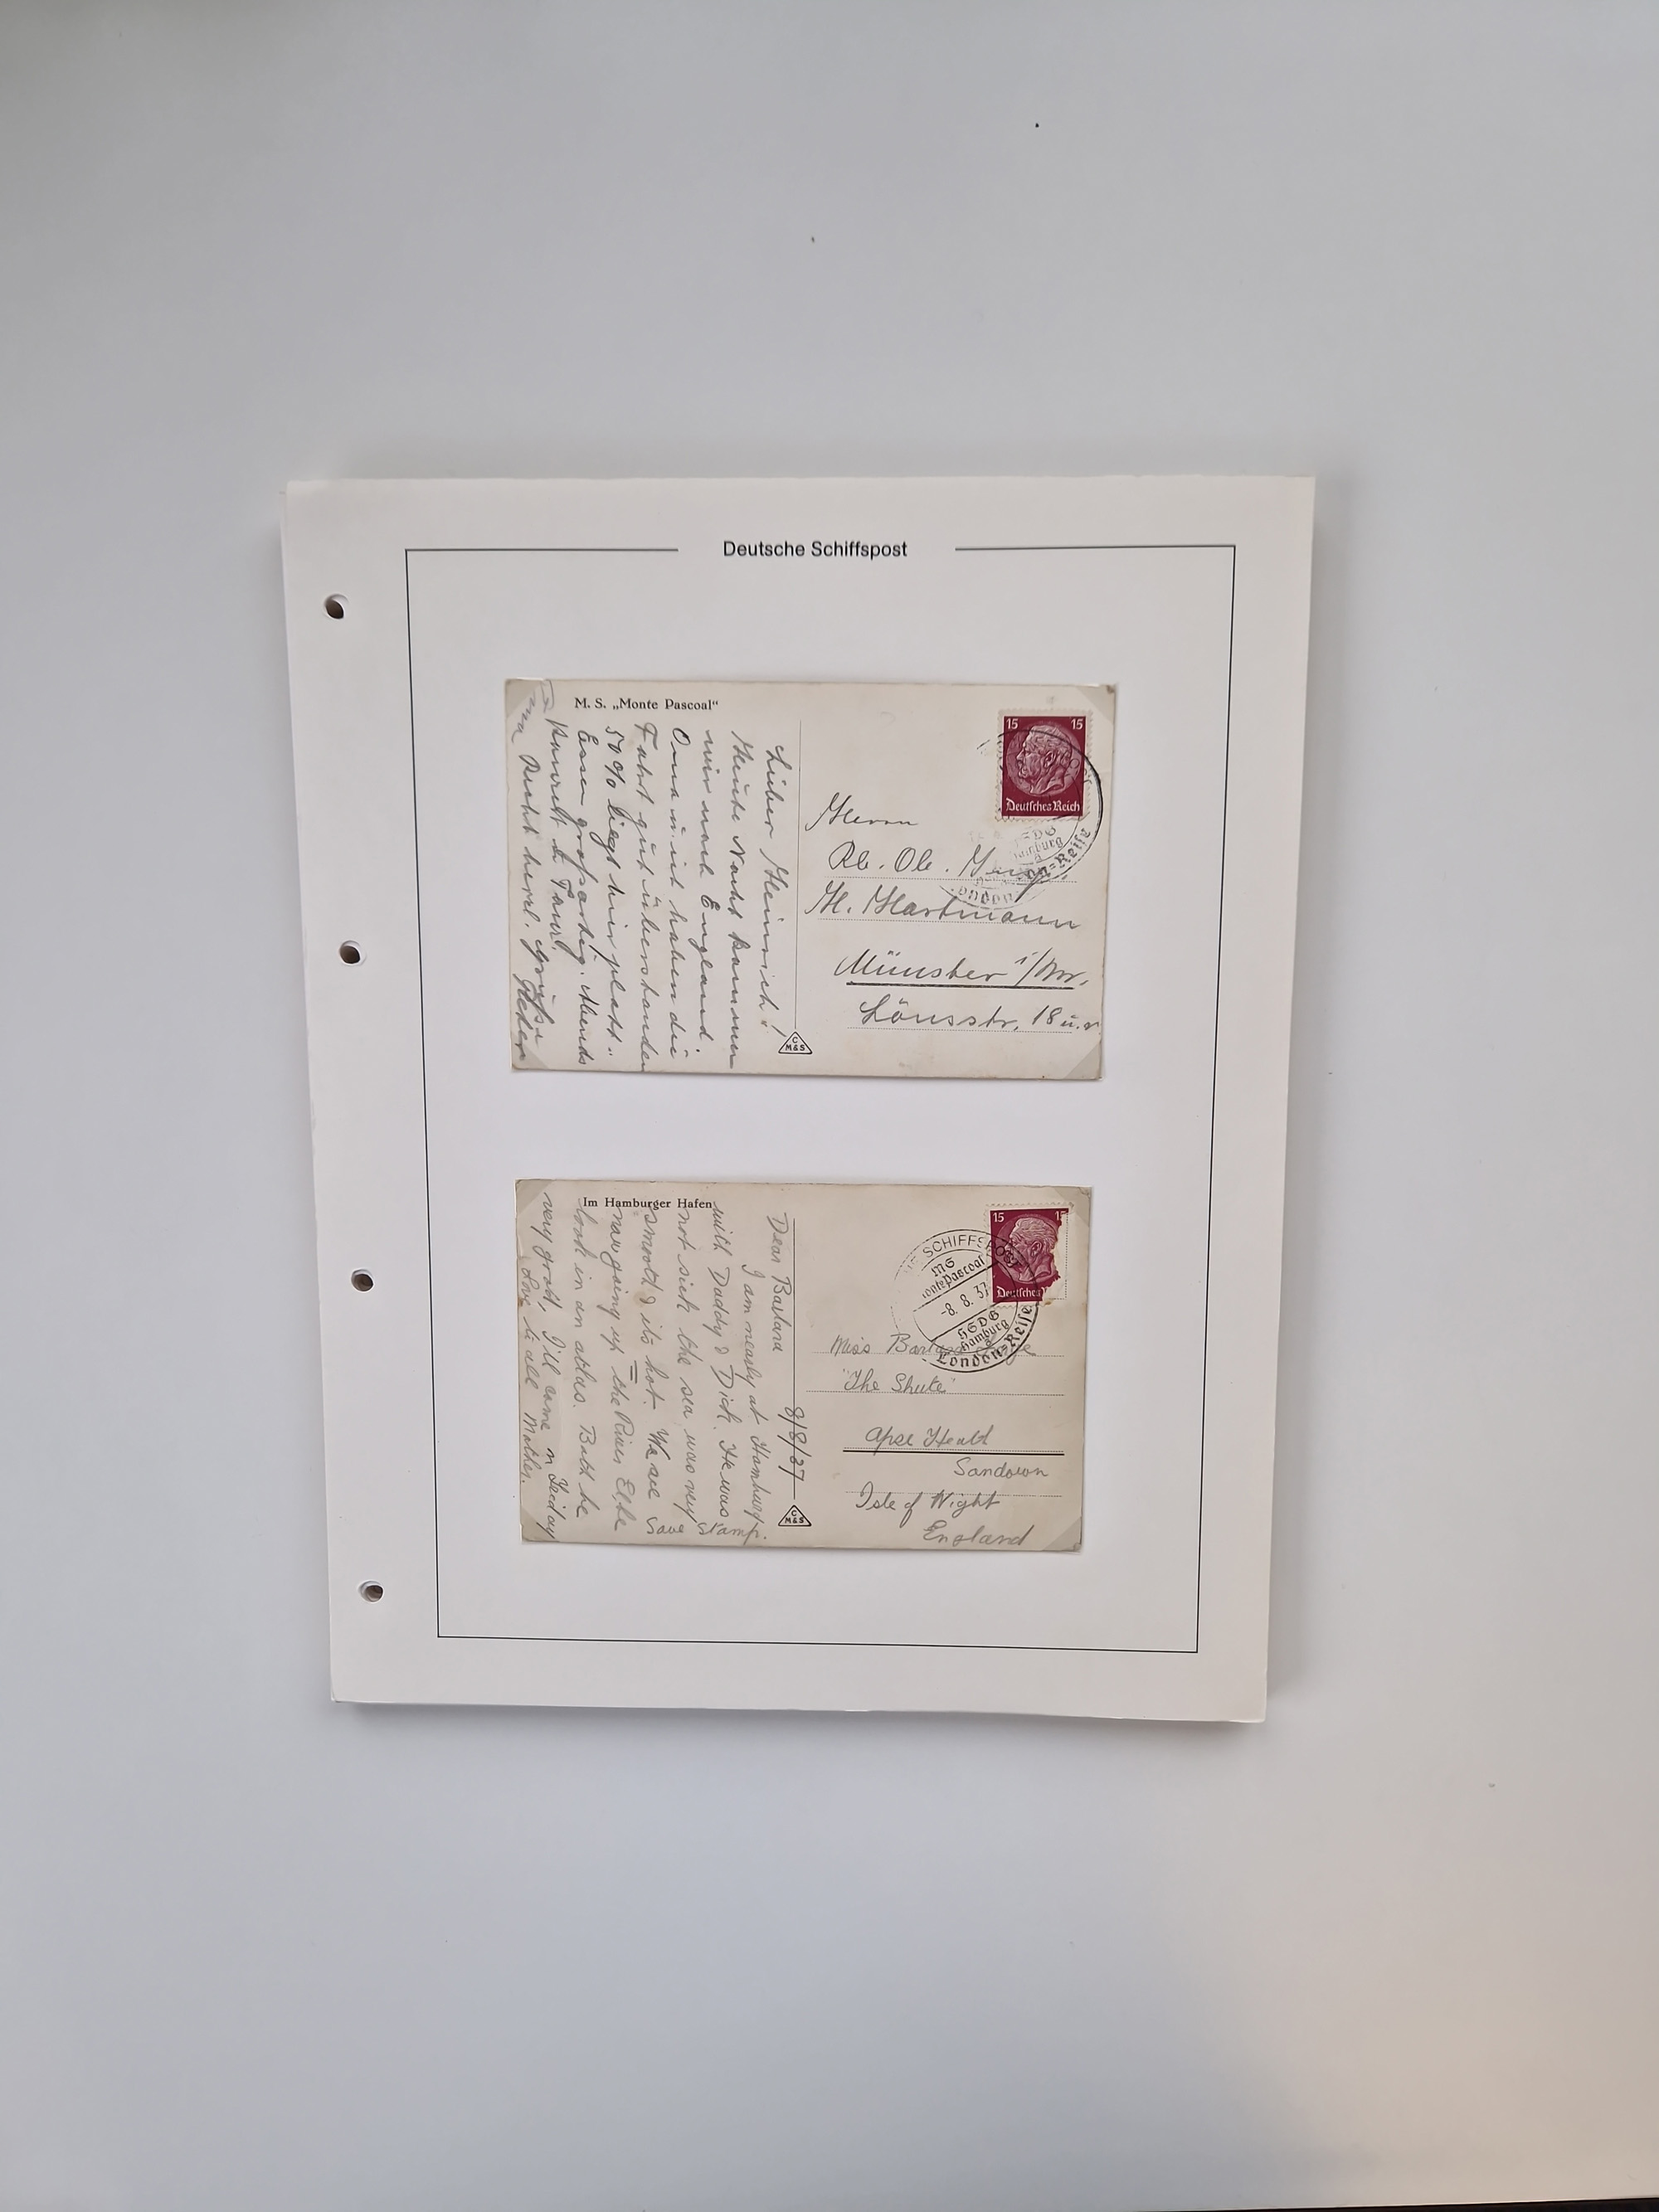 Deutsche Schiffspost
M. S. „Monte Pascoal“
15 15
Deutsches Reich
HSDG
Hamburg
London=Reise
London
Herrn
Rb. Ob.
H. Hartmann
Münster i/W.
Lönsstr. 18
Lieber Heinrich!
Heute Nacht kamen
wir nach England.
Oma u. ich haben die
Fahrt gut überstanden
50% liegt hier platt.
Essen großartig. Abends
Konzert u. Tanz!
Recht herzl. Grüße
C
M&S
Im Hamburger Hafen
15 15
Deutsches
SCHIFFSPOST
MS
Monte Pascoal
-8. 8. 37
HSDG
Hamburg
London=Reise
Miss Barbara
"The Shute"
Apse Heath
Sandown
Isle of Wight
England
8/8/37
Dear Barbara
I am nearly at Hamburg
with Daddy & Dick. He was
not sick the sea was very
smooth & its hot. We are
now going up the River Elbe
look in an atlas. Both be
very good, I'll come on Friday
Love to all Mother.
Save stamp.
C
M&S